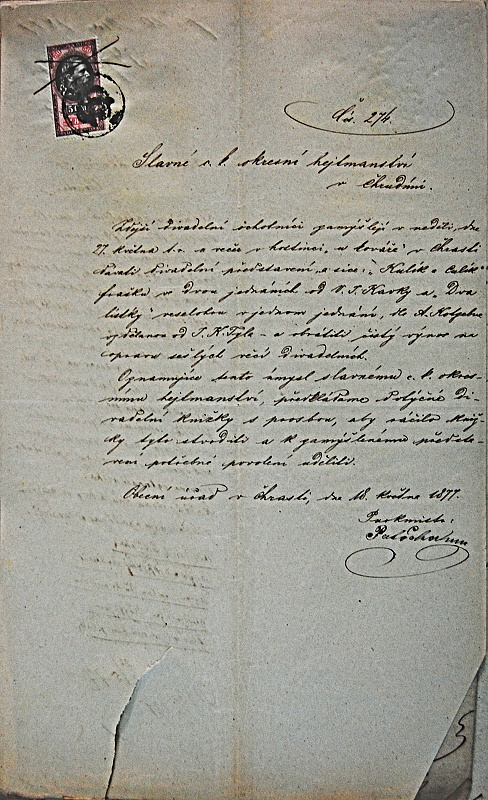 Čís. 274.
Slavné c. k. okresní hejtmanství
v Chrudimi.
Zdejší divadelní ochotníci pamýšlejí v neděli, dne
27. května t. r. a večer v hostinci „u kováře" v Chrasti
dávati divadelní představení, a sice: „Kulík a Culík"
fraška v dvou jednáních od V. J. Kavky a „Dva
lístky" veselohou v jednom jednání, dle A. Kotzebue
vzdělanou od J. K. Tyla - a obrátiti čistý výnos na
opravu sešlých věcí divadelních.
Oznamujíce tento úmysl slavnému c. k. okres-
nímu hejtmanství, předkládáme dotyčné di-
vadelní knížky s prosbou, aby ráčilo kníž-
ky tyto stvrditi a k pamýšlenému předsta-
vení potřebné povolení uděliti.
Obecní úřad v Chrasti, dne 18. května 1877.
Purkmistr: